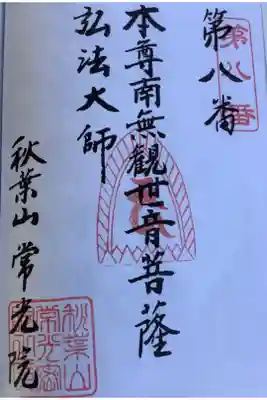 第八番
第八番
本尊南無觀世音菩薩
弘法大師
秋葉山常光院
秋葉山
常光密